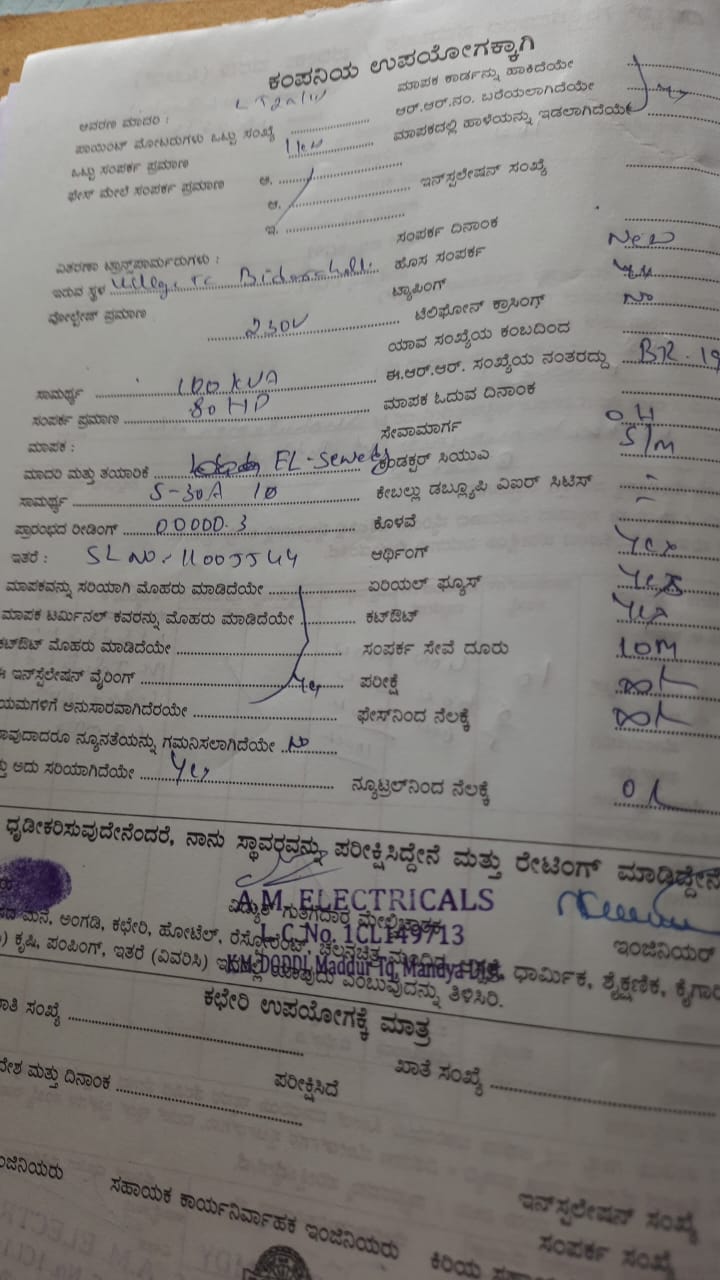 ಕಂಪನಿಯ ಉಪಯೋಗಕ್ಕಾಗಿ
ಆವರಣ ಮಾದರಿ :
ಮಾಪಕ ಕಾರ್ಡನ್ನು ಹಾಕಿದೆಯೇ
ಪಾಯಿಂಟ್ ಮೋಟರುಗಳು ಒಟ್ಟು ಸಂಖ್ಯೆ
ಆರ್.ಆರ್.ನಂ. ಬರೆಯಲಾಗಿದೆಯೇ
ಒಟ್ಟು ಸಂಪರ್ಕ ಪ್ರಮಾಣ
ಮಾಪಕದಲ್ಲಿ ಹಾಳೆಯನ್ನು ಇಡಲಾಗಿದೆಯೇ
ಫೇಸ್ ಮೇಲೆ ಸಂಪರ್ಕ ಪ್ರಮಾಣ ಅ.
ಆ. ಇನ್‌ಸ್ಟಲೇಷನ್ ಸಂಖ್ಯೆ
ಇ.
ಸಂಪರ್ಕ ದಿನಾಂಕ
ವಿತರಣಾ ಟ್ರಾನ್ಸ್‌ಫಾರ್ಮರುಗಳು :
ಹೊಸ ಸಂಪರ್ಕ New
ಇರುವ ಸ್ಥಳ
ಟ್ಯಾಪಿಂಗ್
ವೋಲ್ಟೇಜ್ ಪ್ರಮಾಣ 230V
ಟೆಲಿಫೋನ್ ಕ್ರಾಸಿಂಗ್ No
ಯಾವ ಸಂಖ್ಯೆಯ ಕಂಬದಿಂದ
ಸಾಮರ್ಥ್ಯ 100 KVA
ಈ.ಆರ್.ಆರ್. ಸಂಖ್ಯೆಯ ನಂತರದ್ದು BR-19
ಸಂಪರ್ಕ ಪ್ರಮಾಣ 80 HP
ಮಾಪಕ ಓದುವ ದಿನಾಂಕ
ಮಾಪಕ :
ಸೇವಾಮಾರ್ಗ OH
ಮಾದರಿ ಮತ್ತು ತಯಾರಿಕೆ
ಕಂಡಕ್ಟರ್ ಸಿಯುಎ S/M
ಸಾಮರ್ಥ್ಯ 5-30A 10
ಕೇಬಲ್ಲು ಡಬ್ಲ್ಯೂಪಿ ವಿಐರ್ ಸಿಟಿಸ್ -
ಪ್ರಾರಂಭದ ರೀಡಿಂಗ್ 00000.3
ಕೊಳವೆ -
ಇತರೆ : SL NO:- 11005544
ಆರ್ಥಿಂಗ್ Yes
ಮಾಪಕವನ್ನು ಸರಿಯಾಗಿ ಮೊಹರು ಮಾಡಿದೆಯೇ
ಏರಿಯಲ್ ಫ್ಯೂಸ್ Yes
ಮಾಪಕ ಟರ್ಮಿನಲ್ ಕವರನ್ನು ಮೊಹರು ಮಾಡಿದೆಯೇ
ಕಟ್‌ಔಟ್ Yes
ಕಟ್‌ಔಟ್ ಮೊಹರು ಮಾಡಿದೆಯೇ
ಸಂಪರ್ಕ ಸೇವೆ ದೂರು 10M
ಈ ಇನ್‌ಸ್ಟಲೇಷನ್ ವೈರಿಂಗ್ Yes
ಪರೀಕ್ಷೆ
ಯಮಗಳಿಗೆ ಅನುಸಾರವಾಗಿದೆರಯೇ
ಫೇಸ್‌ನಿಂದ ನೆಲಕ್ಕೆ
ಾವುದಾದರೂ ನ್ಯೂನತೆಯನ್ನು ಗಮನಿಸಲಾಗಿದೆಯೇ No
ತ್ತು ಅದು ಸರಿಯಾಗಿದೆಯೇ Yes
ನ್ಯೂಟ್ರಲ್‌ನಿಂದ ನೆಲಕ್ಕೆ
ಧೃಡೀಕರಿಸುವುದೇನೆಂದರೆ, ನಾನು ಸ್ಥಾವರವನ್ನು ಪರೀಕ್ಷಿಸಿದ್ದೇನೆ ಮತ್ತು ರೇಟಿಂಗ್ ಮಾಡಿದ್ದೇನೆ
A.M. ELECTRICALS
ವಿದ್ಯುತ್ ಗುತ್ತಿಗೆದಾರ ಮೇಲ್ವಿಚಾರಕ
L.C.No. 1CL149713
ಇಂಜಿನಿಯರ್
K.M.DODDI, Maddur Tq, Mandya Dist.
ಮನೆ, ಅಂಗಡಿ, ಕಛೇರಿ, ಹೋಟೆಲ್, ರೆಸ್ಟೋರೆಂಟ್, ಚಲನಚಿತ್ರ ಧಾರ್ಮಿಕ, ಶೈಕ್ಷಣಿಕ, ಕೈಗಾರಿ
) ಕೃಷಿ, ಪಂಪಿಂಗ್, ಇತರೆ (ವಿವರಿಸಿ) ಎಂಬುವುದನ್ನು ತಿಳಿಸಿರಿ.
ಕಛೇರಿ ಉಪಯೋಗಕ್ಕೆ ಮಾತ್ರ
ಾತಿ ಸಂಖ್ಯೆ
ಖಾತೆ ಸಂಖ್ಯೆ
ದೇಶ ಮತ್ತು ದಿನಾಂಕ
ಪರೀಕ್ಷಿಸಿದೆ
ಂಜಿನಿಯರು
ಸಹಾಯಕ ಕಾರ್ಯನಿರ್ವಾಹಕ ಇಂಜಿನಿಯರು
ಕಿರಿಯ
ಇನ್‌ಸ್ಟಲೇಷನ್ ಸಂಖ್ಯೆ
ಸಂಪರ್ಕ ಸಂಖ್ಯೆ